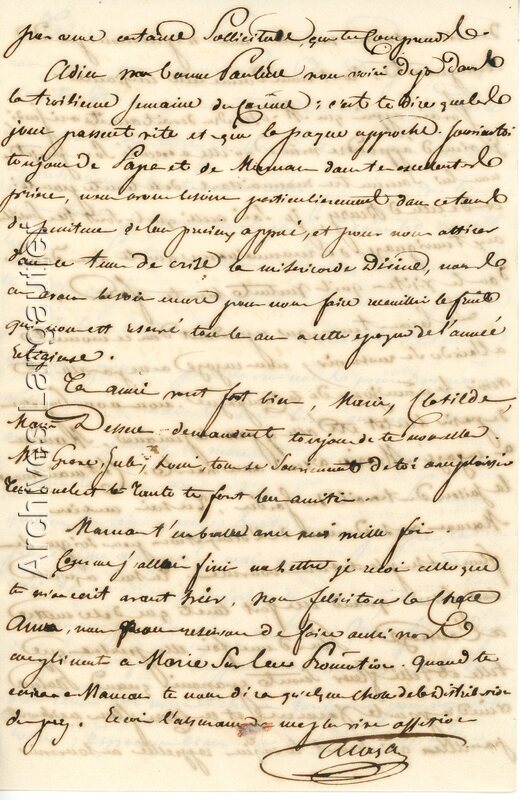 par une certaine sollicitude, que tu comprends.
Adieu ma bonne Pauline nous voici déja dans
la troisieme semaine du Carême ; c'est te dire que les
jours passent vite et que la paque approche. Souviens toi
toujours de Papa et de Maman dans tes excellentes
prieres, nous avons besoin particulierement dans ce tems
de penitence de leur precieux appui, et pour nous attirer
dans ce tems de crise la misericorde Divine, nous
en avons besoin encore pour nous faire recueillir le fruit
qui nous est reservé tous les ans a cette epoque de l'année
Religieuse.
Tes amies vont fort bien, Marie, Clotilde,
demandent toujours de tes nouvelles.
Jule, Louis, tous se souviennent de toi avec plaisir
Ton oncle et ta Tante te font leurs amitiés.
Maman t'embrasse avec moi mille fois.
Comme j'allais finir ma lettre je recois celle que
tu m'as ecrit avant hier, nous felicitons la Chere
Anna, nous nous reservons de faire aussi nos
complimens a Marie sur leurs Promotions. Quand tu
ecriras a Maman tu nous diras quelque chose de la distribution
de prix. Recois l'assurance de ma plus vive affection
Archives Langauffier